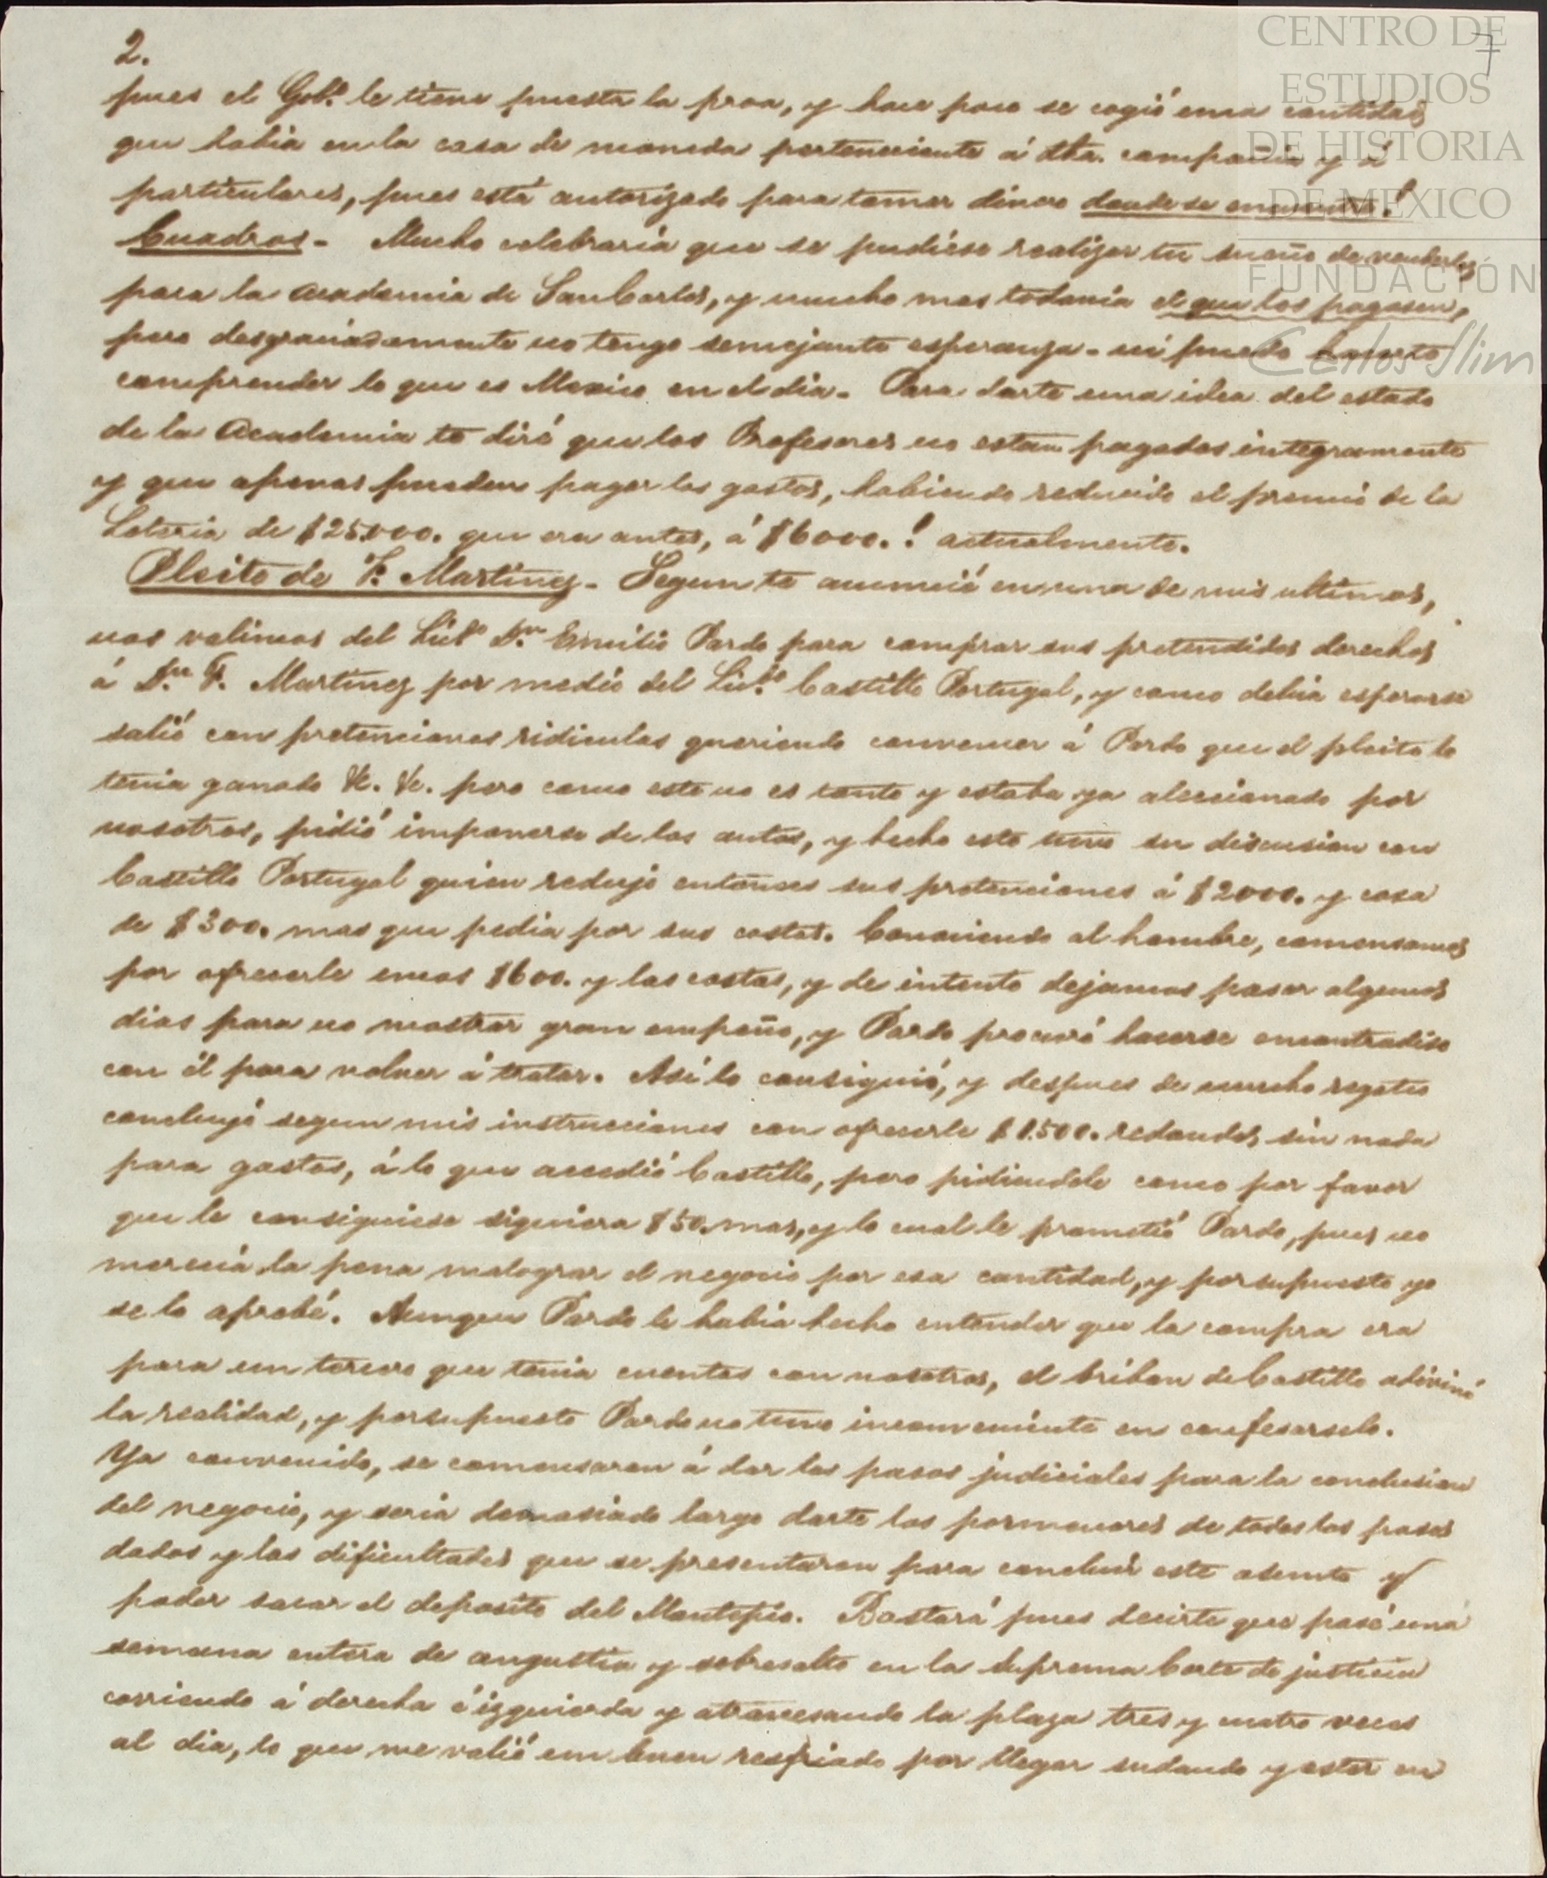 2.
7
CENTRO DE
ESTUDIOS
DE HISTORIA
DE MÉXICO
FUNDACIÓN
Carlos Slim
pues el Gob.º le tiene puesta la proa, y hace poco se cogió una cantidad
que habia en la casa de moneda perteneciente á dha. compañia y á
particulares, pues está autorizado para tomar dinero donde se encuentre!
Cuadros - Mucho celebraria que se pudiese realizar tu sueño de venderlos
para la Academia de San Carlos, y mucho mas todavia el que los pagasen,
pero desgraciadamente no tengo semejante esperanza - ni puedo hacerte
comprender lo que es Mexico en el dia. Para darte una idea del estado
de la Academia te diré que los Profesores no estan pagados integramente
y que apenas pueden pagar los gastos, habiendo reducido el premio de la
Loteria de $25.000. que era antes, á $6000.! actualmente.
Pleito de F. Martinez - Segun te anuncié en una de mis ultimas,
nos valimos del Licdo Dn Emilio Pardo para comprar sus pretendidos derechos
á Dn F. Martinez por medio del Licdo Castillo Portugal, y como debia esperarse
salió con pretenciones ridiculas queriendo convencer á Pardo que el pleito lo
tenia ganado &c. &c. pero como este no es tonto y estaba ya aleccionado por
nosotros, pidió imponerse de los autos, y hecho esto tuvo su discusion con
Castillo Portugal quien redujo entonses sus pretenciones á $2000. y cosa
de $300. mas que pedia por sus costas. Conociendo al hombre, comensamos
por ofrecerle unos $600. y las costas, y de intento dejamos pasar algunos
dias para no mostrar gran empeño, y Pardo procuró hacerse encontradiso
con él para volver á tratar. Así lo consiguió, y despues de mucho regateo
concluyó segun mis instrucciones con ofrecerle $1.500. redondos, sin nada
para gastos, á lo que accedió Castillo, pero pidiendole como por favor
que le consiguiese siquiera $50. mas, y lo cual le prometió Pardo, pues no
merecia la pena malograr el negocio por esa cantidad, y por supuesto yo
se lo aprobé. Aunque Pardo le habia hecho entender que la compra era
para un tercero que tenia cuentas con nosotros, el bribon de Castillo adivinó
la realidad, y por supuesto Pardo no tuvo inconveniente en confesarselo.
Ya convenido, se comensaron á dar los pasos judiciales para la conclusion
del negocio, y seria demasiado largo darte los pormenores de todos los pasos
dados y las dificultades que se presentaron para concluir este asunto y
poder sacar el deposito del Montepio. Bastará pues decirte que pasé una
semana entera de angustia y sobresalto en la Suprema Corte de justicia
corriendo á derecha é izquierda y atravesando la plaza tres y cuatro veces
al dia, lo que me valió un buen resfriado por llegar sudando y estar en